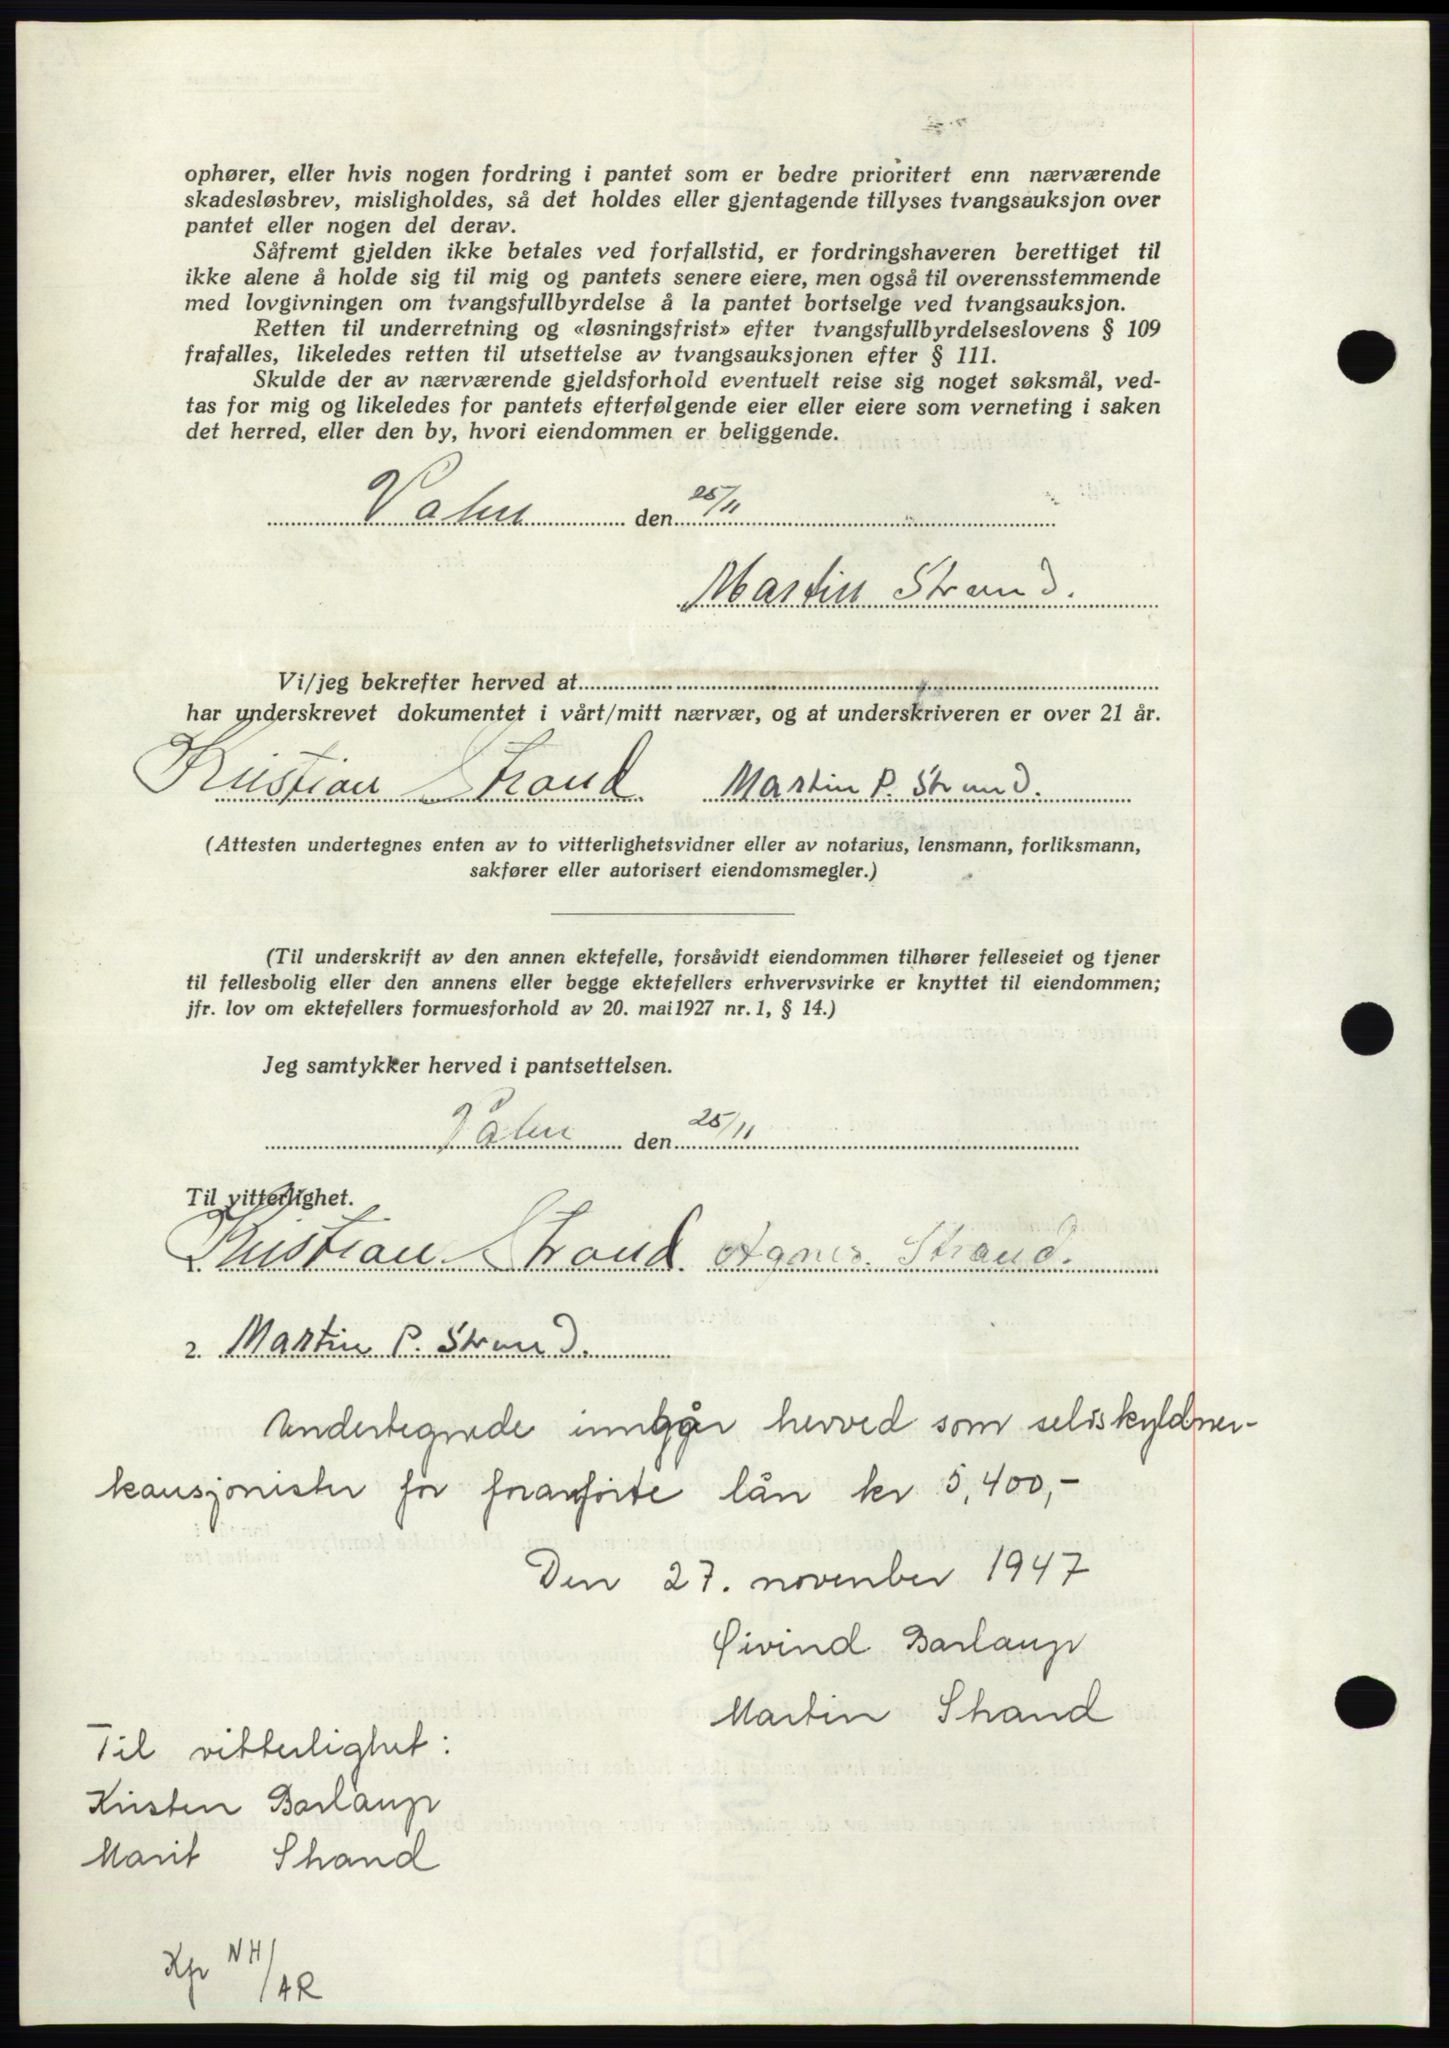 ophører, eller hvis nogen fordring i pantet som er bedre prioritert enn nærværende
skadesløsbrev, misligholdes, så det holdes eller gjentagende tillyses tvangsauksjon over
pantet eller nogen del derav.
Såfremt gjelden ikke betales ved forfallstid, er fordringshaveren berettiget til
ikke alene å holde sig til mig og pantets senere eiere, men også til overensstemmende
med lovgivningen om tvangsfullbyrdelse å la pantet bortselge ved tvangsauksjon.
Retten til underretning og «løsningsfrist» efter tvangsfullbyrdelseslovens § 109
frafalles, likeledes retten til utsettelse av tvangsauksjonen efter § 111.
Skulde der av nærværende gjeldsforhold eventuelt reise sig noget søksmål, ved-
tas for mig og likeledes for pantets efterfølgende eier eller eiere som verneting i saken
det herred, eller den by, hvori eiendommen er beliggende.
den 25/11
Martin Strand.
Vi/jeg bekrefter herved at
har underskrevet dokumentet i vårt/mitt nærvær, og at underskriveren er over 21 år.
Kristian Strand. Martin P. Strand.
(Attesten undertegnes enten av to vitterlighetsvidner eller av notarius, lensmann, forliksmann,
sakfører eller autorisert eiendomsmegler.)
(Til underskrift av den annen ektefelle, forsåvidt eiendommen tilhører felleseiet og tjener
til fellesbolig eller den annens eller begge ektefellers erhvervsvirke er knyttet til eiendommen;
jfr. lov om ektefellers formuesforhold av 20. mai 1927 nr. 1, § 14.)
Jeg samtykker herved i pantsettelsen.
den 25/11
Til vitterlighet.
1. Kristian Strand. Agnes. Strand.
2. Martin P. Strand.
Undertegnede inngår herved som selvskyldner-
kausjonister for foranførte lån kr 5,400,-
Den 27. november 1947
Øivind Barlaup
Martin Strand
Til vitterlighet:
Kristen Barlaup
Marit Strand
Kp NH/AR